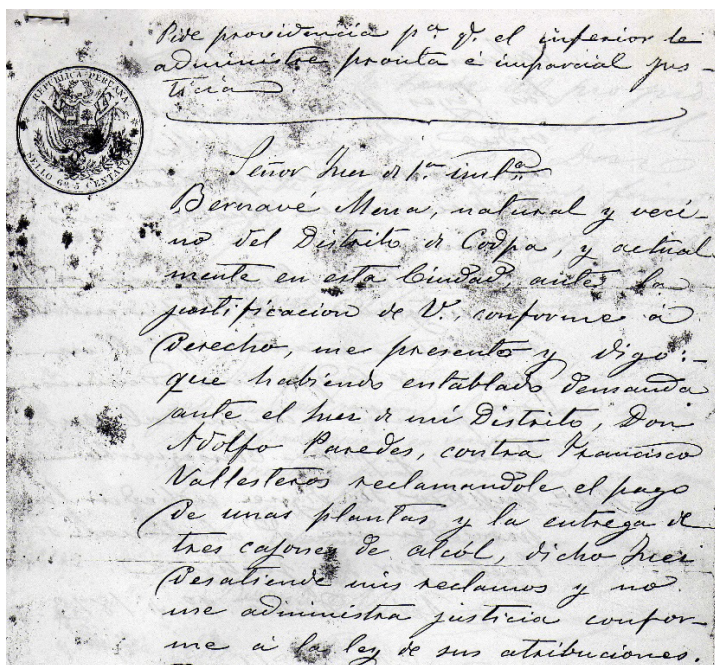 Pide providencia pª q. el inferior le
administre pronta é imparcial jus-
ticia
REPÚBLICA PERUANA
SELLO 6º 5 CENTAVOS
Señor Juez de 1ª instª
Bernavé Mena, natural y veci-
no del Distrito de Codpa, y actual
mente en esta Ciudad, ante la
justificacion de V., conforme á
derecho, me presento y digo:-
que habiendo entablado demanda
ante el Juez de mi Distrito, Don
Adolfo Paredes, contra Francisco
Vallesteros reclamandole el pago
de unas plantas y la entrega de
tres cajones de alcól, dicho Juez
desatiende mis reclamos y no
me administra justicia confor-
me á la ley de sus atribuciones.